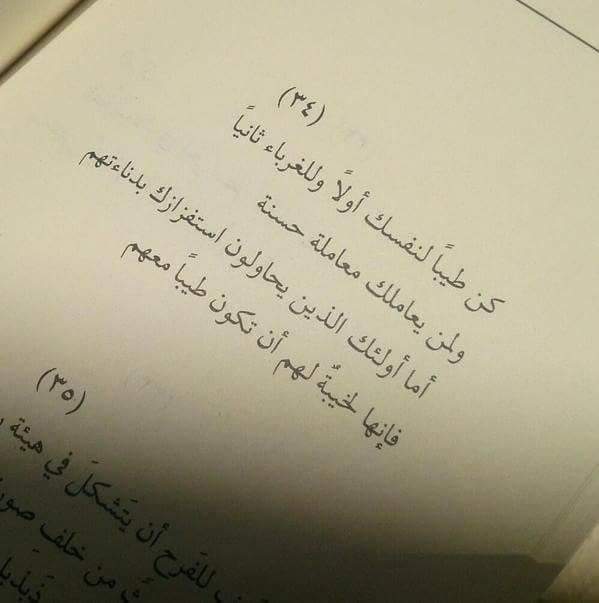 (٣٤)
كن طيباً لنفسك أولاً وللغرباء ثانياً
ولمن يعاملك معاملة حسنة
أما أولئك الذين يحاولون استفزازك بدناءتهم
فإنها لخيبةٌ لهم أن تكون طيباً معهم
(٣٥)
للفَرح أن يَتشكلَ في هيئة
من خلفِ